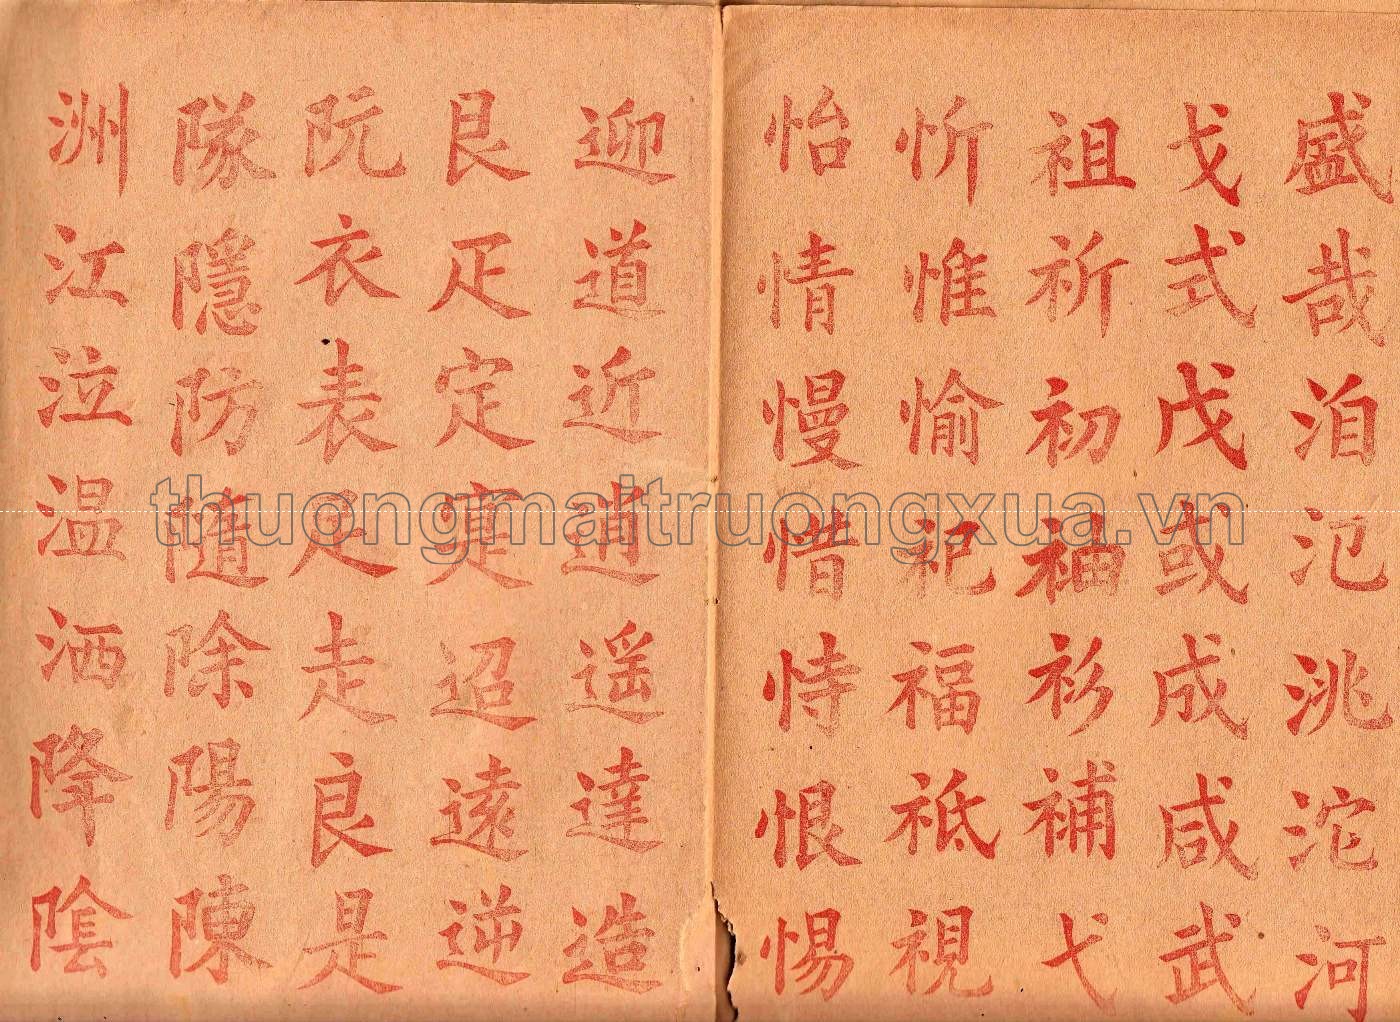 洲江泣温洒降陰
隊隱防随除陽陳
阮衣表足走良是
艮疋定寔迢遠逆
迎道近逍遥達造
怡情慢惜恃恨惕
忻惟愉祀福祗視
祖祈初袖衫補弋
戈式戊或成咸武
盛哉洎氾洮沱河
thuongmaitruongxua.vn